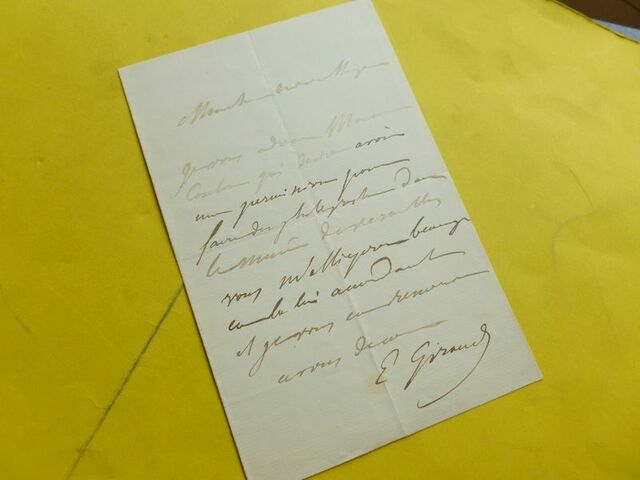 Mon cher
je vous adresse Monsieur
qui desire avoir
une permission pour
faire des photographies dans
le Musée de Versailles
vous m'obligerez beaucoup
en la lui accordant
et je vous en remercie
a vous de coeur
E Giraud